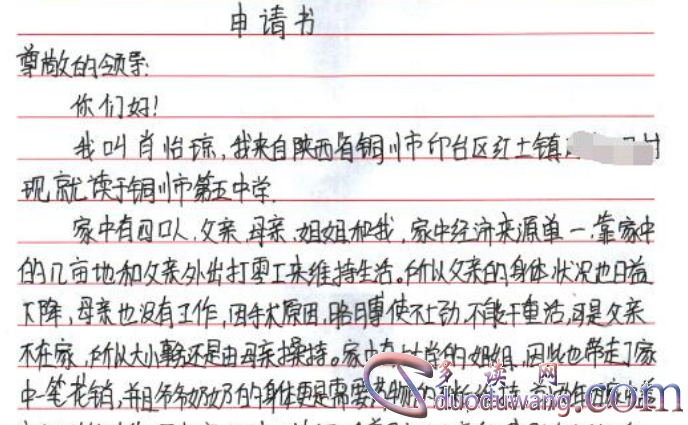 申请书
尊敬的领导:
你们好!
我叫肖怡琼,我来自陕西省铜川市印台区红土镇 村
现就读于铜川市第五中学.
家中有四口人,父亲,母亲,姐姐和我,家中经济来源单一,靠家中
的几亩地和父亲外出打零工来维持生活。所以父亲的身体状况也日益
下降,母亲也没有工作,因手术原因,胳膊使不上劲,不能干重活,可是父亲
不在家,所以大小事还是由母亲操持。家中有上学的姐姐,因此也带走了家
中一笔花销,并且爷爷奶奶的身体更是需要药物的
多读网
duoduwang.com